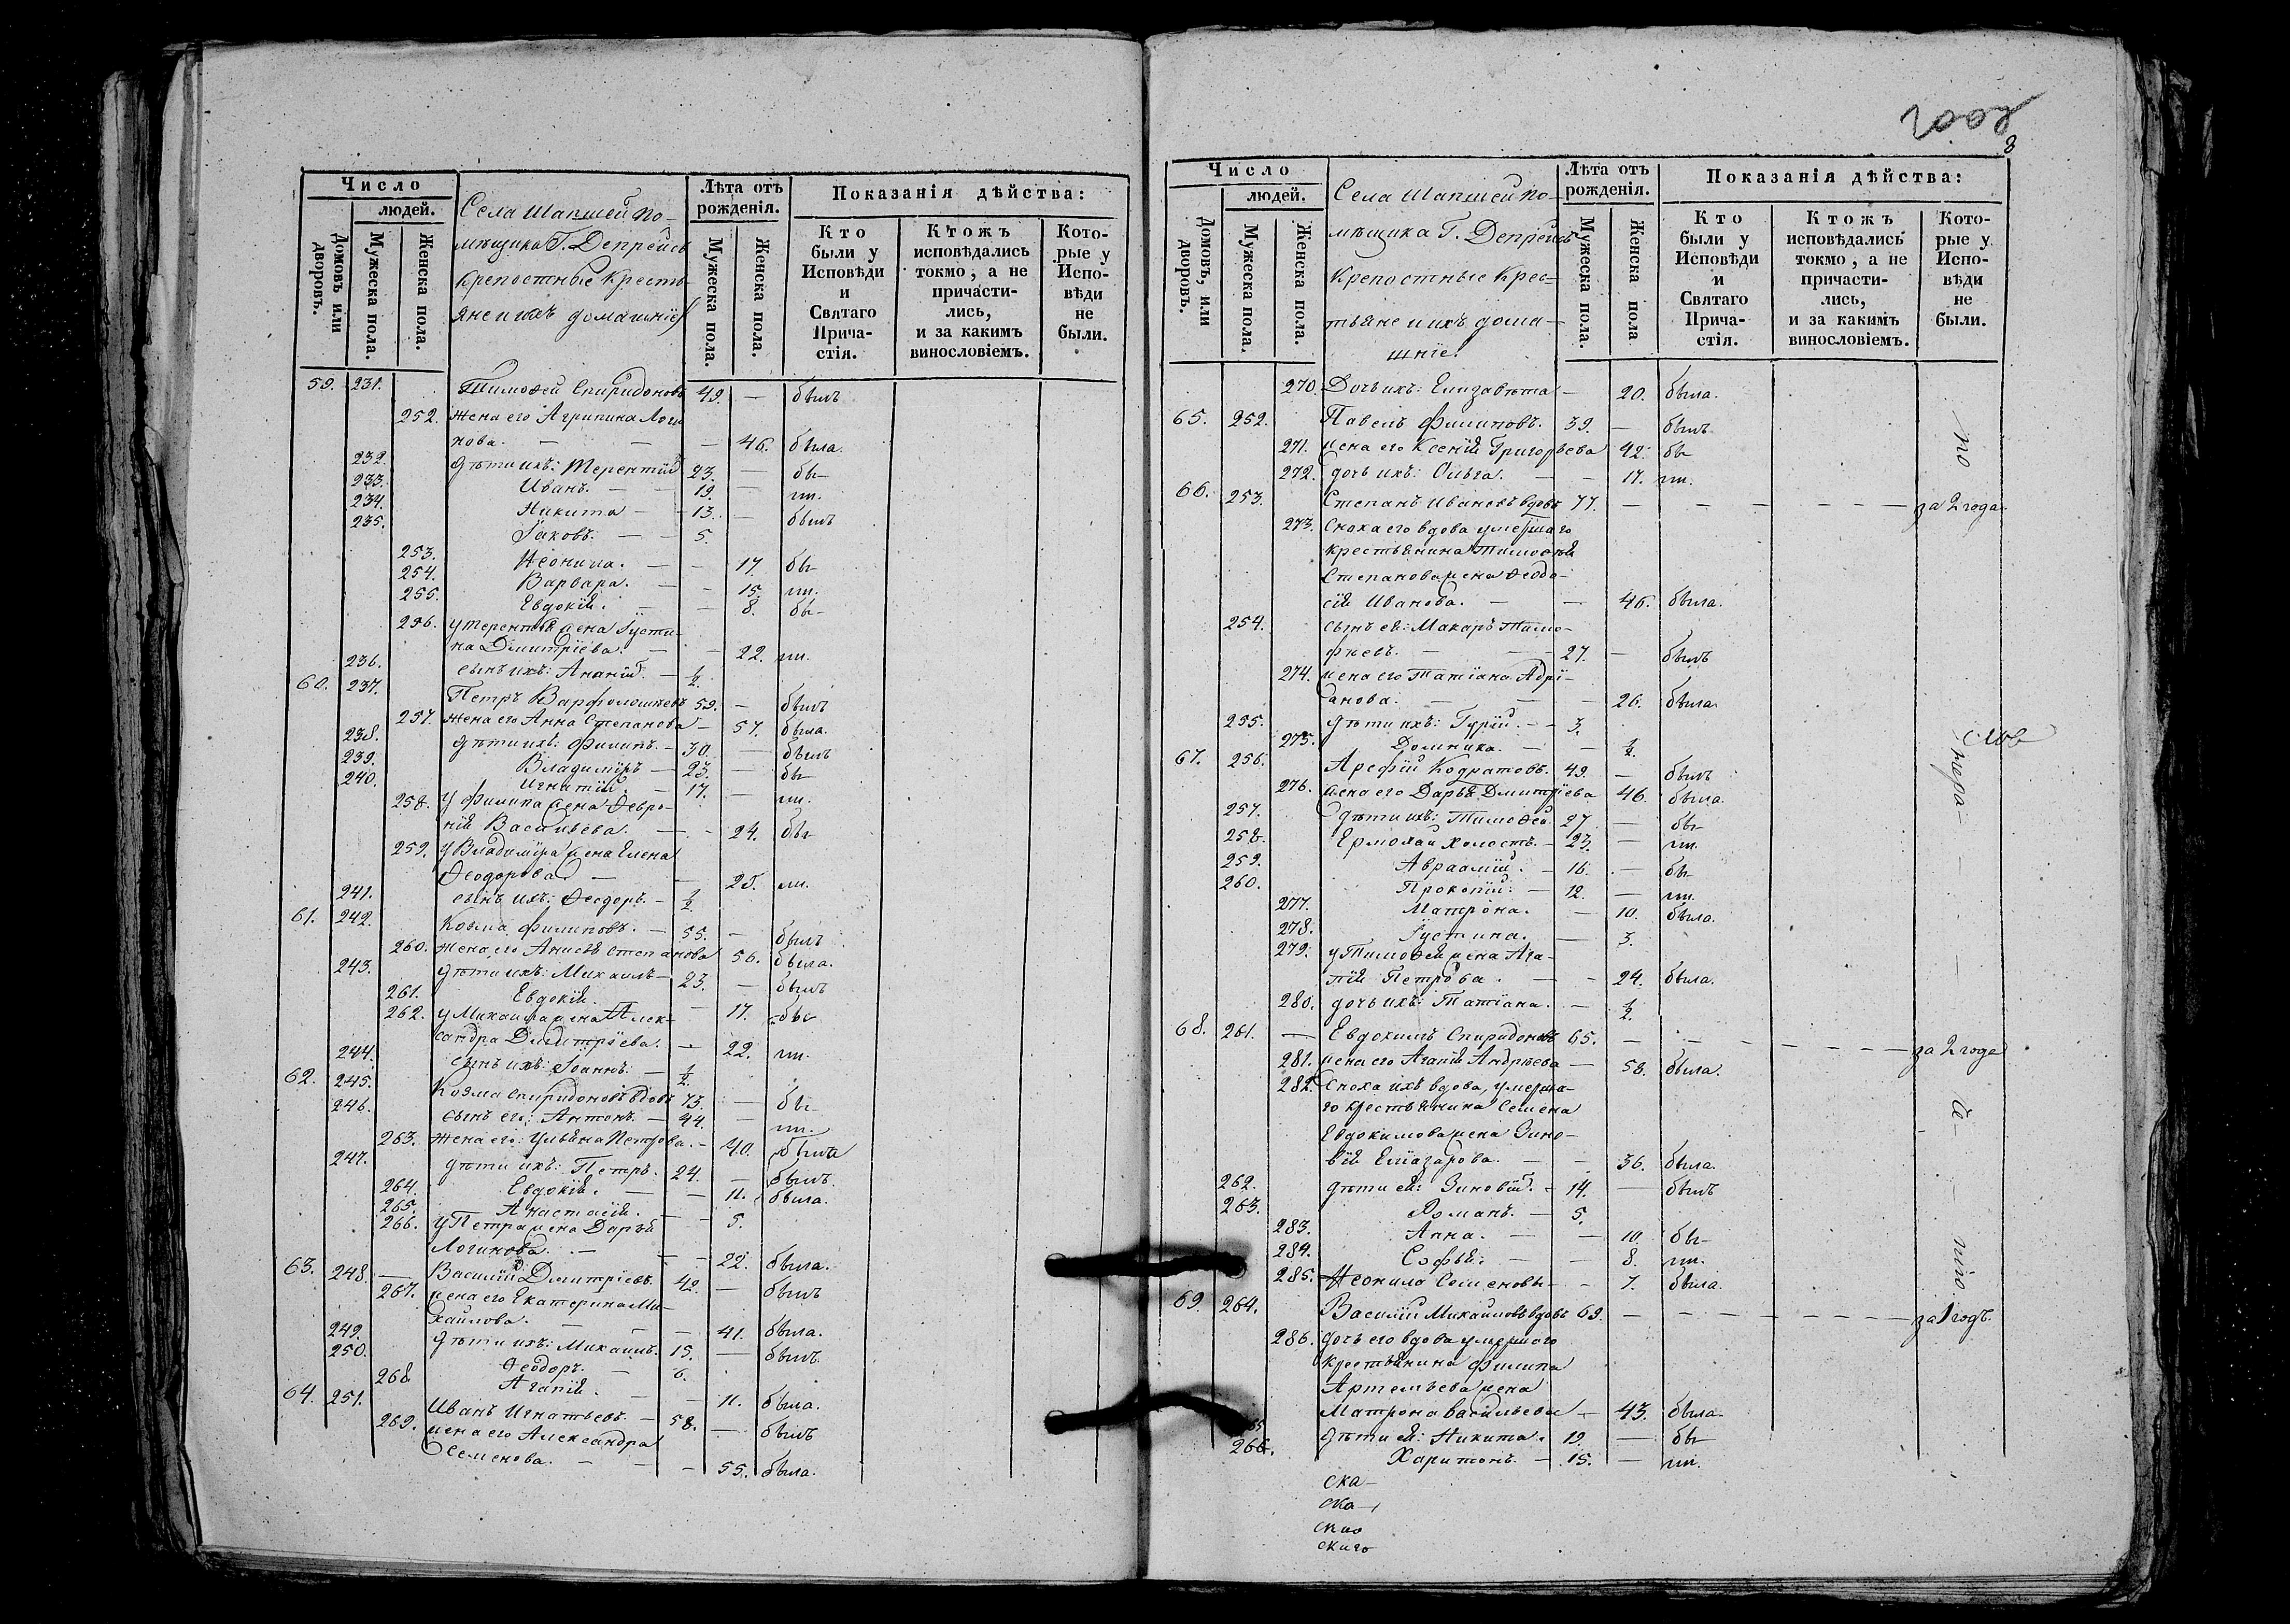 Число
людей.
Домовъ или дворовъ.
Мужеска пола.
Женска пола.
Села Шапшей по-
мѣщика Г. Депрейсъ
крепостные кресть-
яне и ихъ домашніе
Лѣта отъ рожденія.
Мужеска пола.
Женска пола.
Показанія дѣйства:
Кто были у Исповѣди и Святаго Прича-стія.
Ктожъ исповѣдались токмо, а не причасти-лись, и за какимъ винословіемъ.
Кото-рые у Испо-вѣди не были.
59. 231. Тимоѳей Спиридоновъ 49. — былъ
252. жена его Агрипина Логи
нова. — — — 46. была.
232. дѣти ихъ: Терентій 23. — бы-
233. Иванъ. — 19. — ли.
234. Никита — 13. — былъ
235. Іаковъ. — 5.
253. Неонила. — — 17. бы-
254. Варвара. — — 15. ли.
255. Евдокія. — — 8. бы-
256. у Терентія жена Іусти-
на Димитріева. — — 22. ли.
236. сынъ ихъ: Ананій. — ½.
60. 237. Петръ Варфоломѣевъ 59. — былъ
257. жена его Анна Степанова — 57. была.
238. дѣти ихъ: Филипъ. — 30. — былъ
239. Владиміръ — 23. — бы-
240. Игнатій. — 17. — ли.
258. у Филипа жена Февро-
нія Васильева. — — 24. бы-
259. у Владиміра жена Елена
Ѳеодорова — — 25. ли.
241. сынъ ихъ: Ѳеодоръ. — ½.
61. 242. Козма Филиповъ. — 55. — былъ
260. жена его Анисья Степанова 56. была.
243. дѣти ихъ: Михаилъ — 23. — былъ
261. Евдокія. — 17. бы-
262. у Михаила жена Алек-
сандра Димитріева. — 22. ли.
244. сынъ ихъ: Іоаннъ. — ½.
62. 245. Козма Спиридоновъ вдовъ 73. — бы-
246. сынъ его: Антонъ. — 44. — ли.
263. жена его: Ульяна Петрова. — 40. была
247. дѣти ихъ: Петръ. 24. — былъ.
264. Евдокія. — — 11. была.
265. Анастасія. — — 5.
266. у Петра жена Дарья
Логинова. — — — 22. была.
63. 248. — Василій Димитріевъ. 42. — былъ
267. жена его Екатерина Ми-
хайлова. — — — 41. была.
249. дѣти ихъ: Михаилъ. 15. — былъ.
250. Ѳеодоръ. — 6.
268 Агапія. — — 11. была.
64. 251. Иванъ Игнатьевъ. — 58. — былъ
269. жена его Александра
Семенова. — — — 55. была.
8
Число
людей.
Домовъ, или дворовъ.
Мужеска пола.
Женска пола.
Села Шапшей по-
мѣщика Г. Депрейсъ
крепостные крес-
тьяне и ихъ дома-
шніе.
Лѣта отъ рожденія.
Мужеска пола.
Женска пола
Показанія дѣйства:
Кто были у Исповѣди и Святаго Прича-стія.
Ктожъ исповѣдались токмо, а не причасти-лись, и за какимъ винословіемъ.
Кото-рые у Испо-вѣди не были.
270. Дочь ихъ: Елизавѣта — 20. была.
65. 252. Павелъ Филиповъ. 39. — былъ
271. жена его Ксенія Григорьева 42. бы
272. дочь ихъ: Ольга. — — 17. ли.
66. 253. Степанъ Ивановъ вдовъ 77. — — — — за 2 года.
273. Сноха его вдова умершаго
крестьянина Тимоѳея
Степанова жена Ѳеодо-
сія Иванова. — — 46. была.
254. сынъ ея: Макаръ Тимо-
фѣевъ. — — 27. — былъ
274. жена его Татіана Адрі-
анова. — — — 26. была.
255. дѣти ихъ: Гурій. — 3.
275. Домника. — — ½.
67. 256. Арефій Кодратовъ. 49. — былъ
276. жена его Дарья Димитріева 46. была.
257. дѣти ихъ: Тимоѳей 27 — бы-
258. Ермолай холостъ. — 23. — ли.
259. Авраамій. — 16. — бы-
260. Прокопій. — 12. — ли.
277. Матрона. — 10. была.
278. Іустина. — 3.
279. у Тимоѳея жена Ага-
пія Петрова. — — 24. была.
280. дочь ихъ: Татіана. — ½.
68. 261. — Евдокимъ Спиридоновъ 65. — — — — за 2 года
281. жена его Агапія Андрѣева — 58. была.
282. Сноха ихъ вдова, умерша-
го крестьянина Семена
Евдокимова жена Зино-
вія Елиазарова. — — 36. была.
262. дѣти ея: Зиновій. — 14. — былъ
263. Романъ. — 5.
283. Анна. — — 10 бы-
284. Софья. — — 8. ли.
285. Неонила Семеновы — 7. была.
69. 264. Василій Михайловъ вдовъ 69. — — — — за 1 годъ.
286. дочь его вдова умершаго
крестьянина Филипа
Артемьева жена
Матрона Васильева — 43. была.
дѣти ея: Никита. 19. — бы-
266. Харитонъ. — 15. — ли.
ска-
ска-